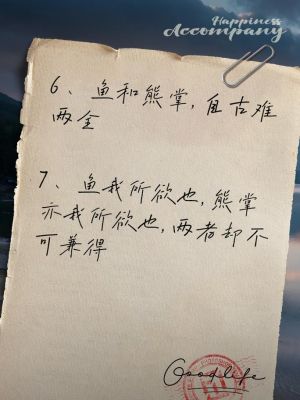 Happiness
Accompany
6、鱼和熊掌,自古难
两全
7、鱼我所欲也,熊掌
亦我所欲也,两者却不
可兼得
Goodlife